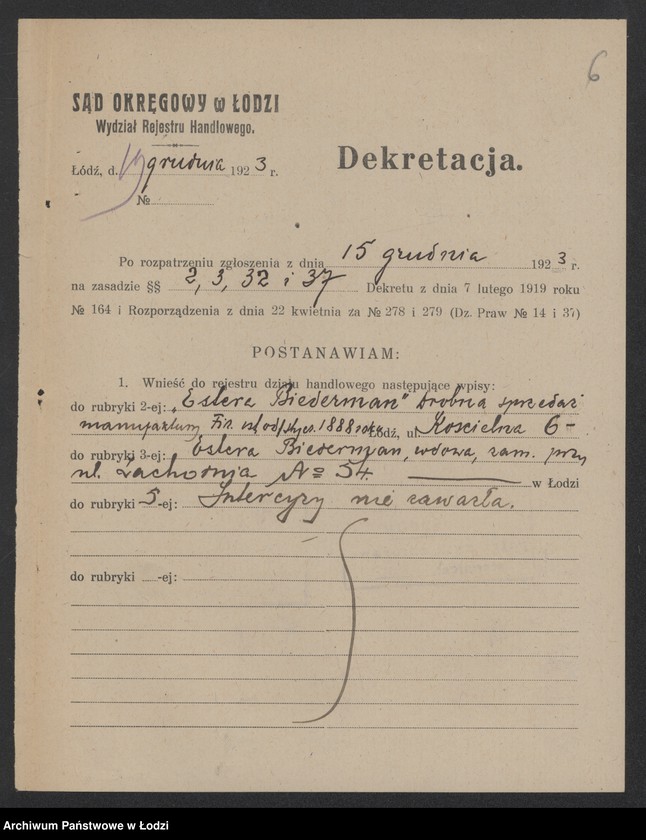 6
SĄD OKRĘGOWY w ŁODZI
Wydział Rejestru Handlowego.
Łódź, d. 19 grudnia 1923 r.
№
Dekretacja.
Po rozpatrzeniu zgłoszenia z dnia 15 grudnia 1923 r.
na zasadzie §§ 2, 3, 32 i 37 Dekretu z dnia 7 lutego 1919 roku
№ 164 i Rozporządzenia z dnia 22 kwietnia za № 278 i 279 (Dz. Praw № 14 i 37)
POSTANAWIAM:
1. Wnieść do rejestru działu handlowego następujące wpisy:
do rubryki 2-ej: „Estera Biederman" Drobna sprzedaż
manufaktury Fir. istn. od 1888 roku Łódź, ul. Kościelna 6 –
do rubryki 3-ej: Estera Biederman, wdowa, zam. przy
ul. Zachodnia № 54. w Łodzi
do rubryki 5-ej: Intercyzy nie zawarła.
do rubryki -ej:
Archiwum Państwowe w Łodzi